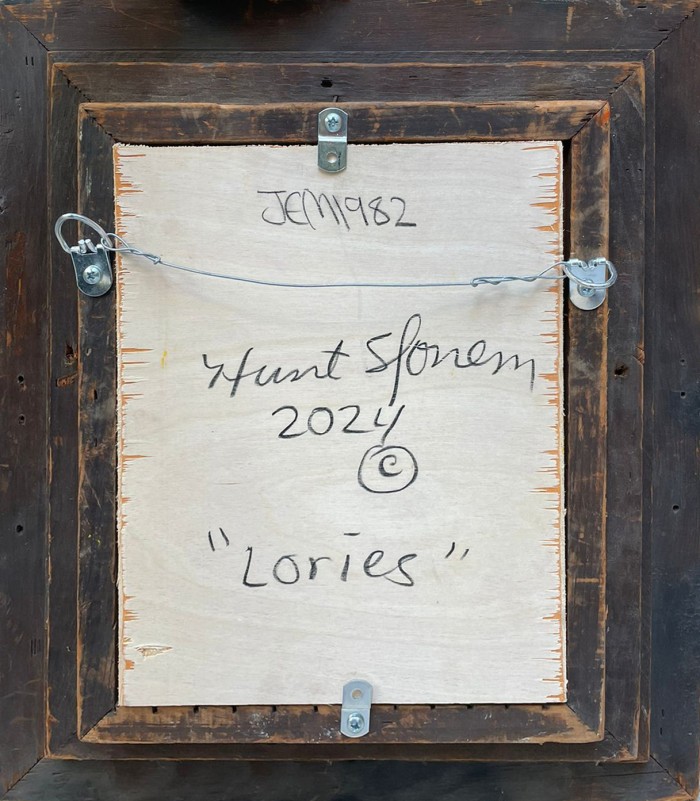 JEM1982
Hunt Slonem
2024
©
"Lories"